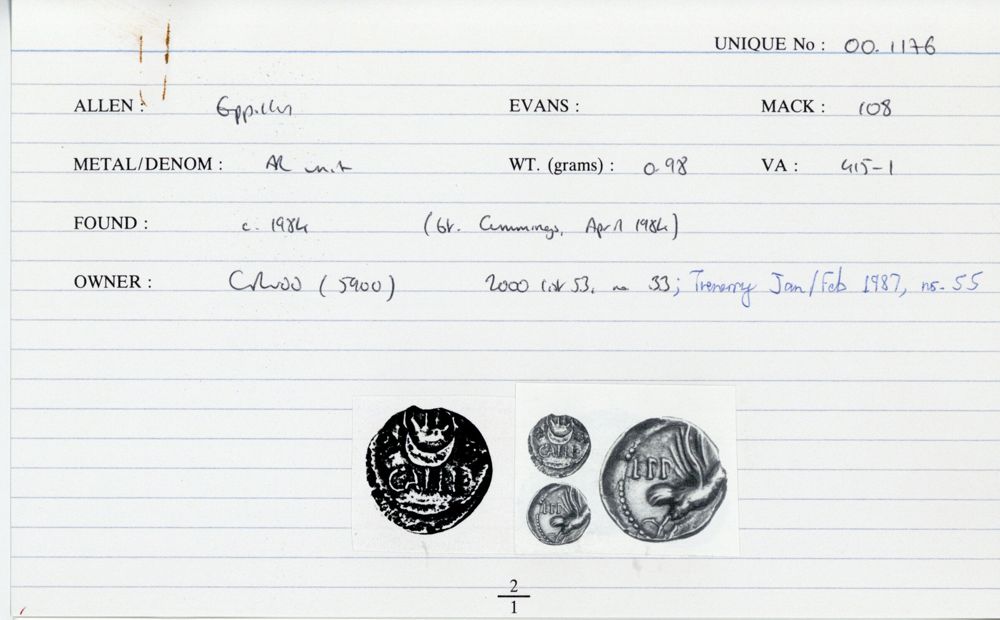 UNIQUE No : 00.1176
ALLEN : Eppillus EVANS : MACK : 108
METAL/DENOM : AR unit WT. (grams) : 0.98 VA : 415-1
FOUND : c. 1984 (G. Cummings, April 1984)
OWNER : (5900) 2000 list 53, no 33; Jan/Feb 1987, no. 55
2
1